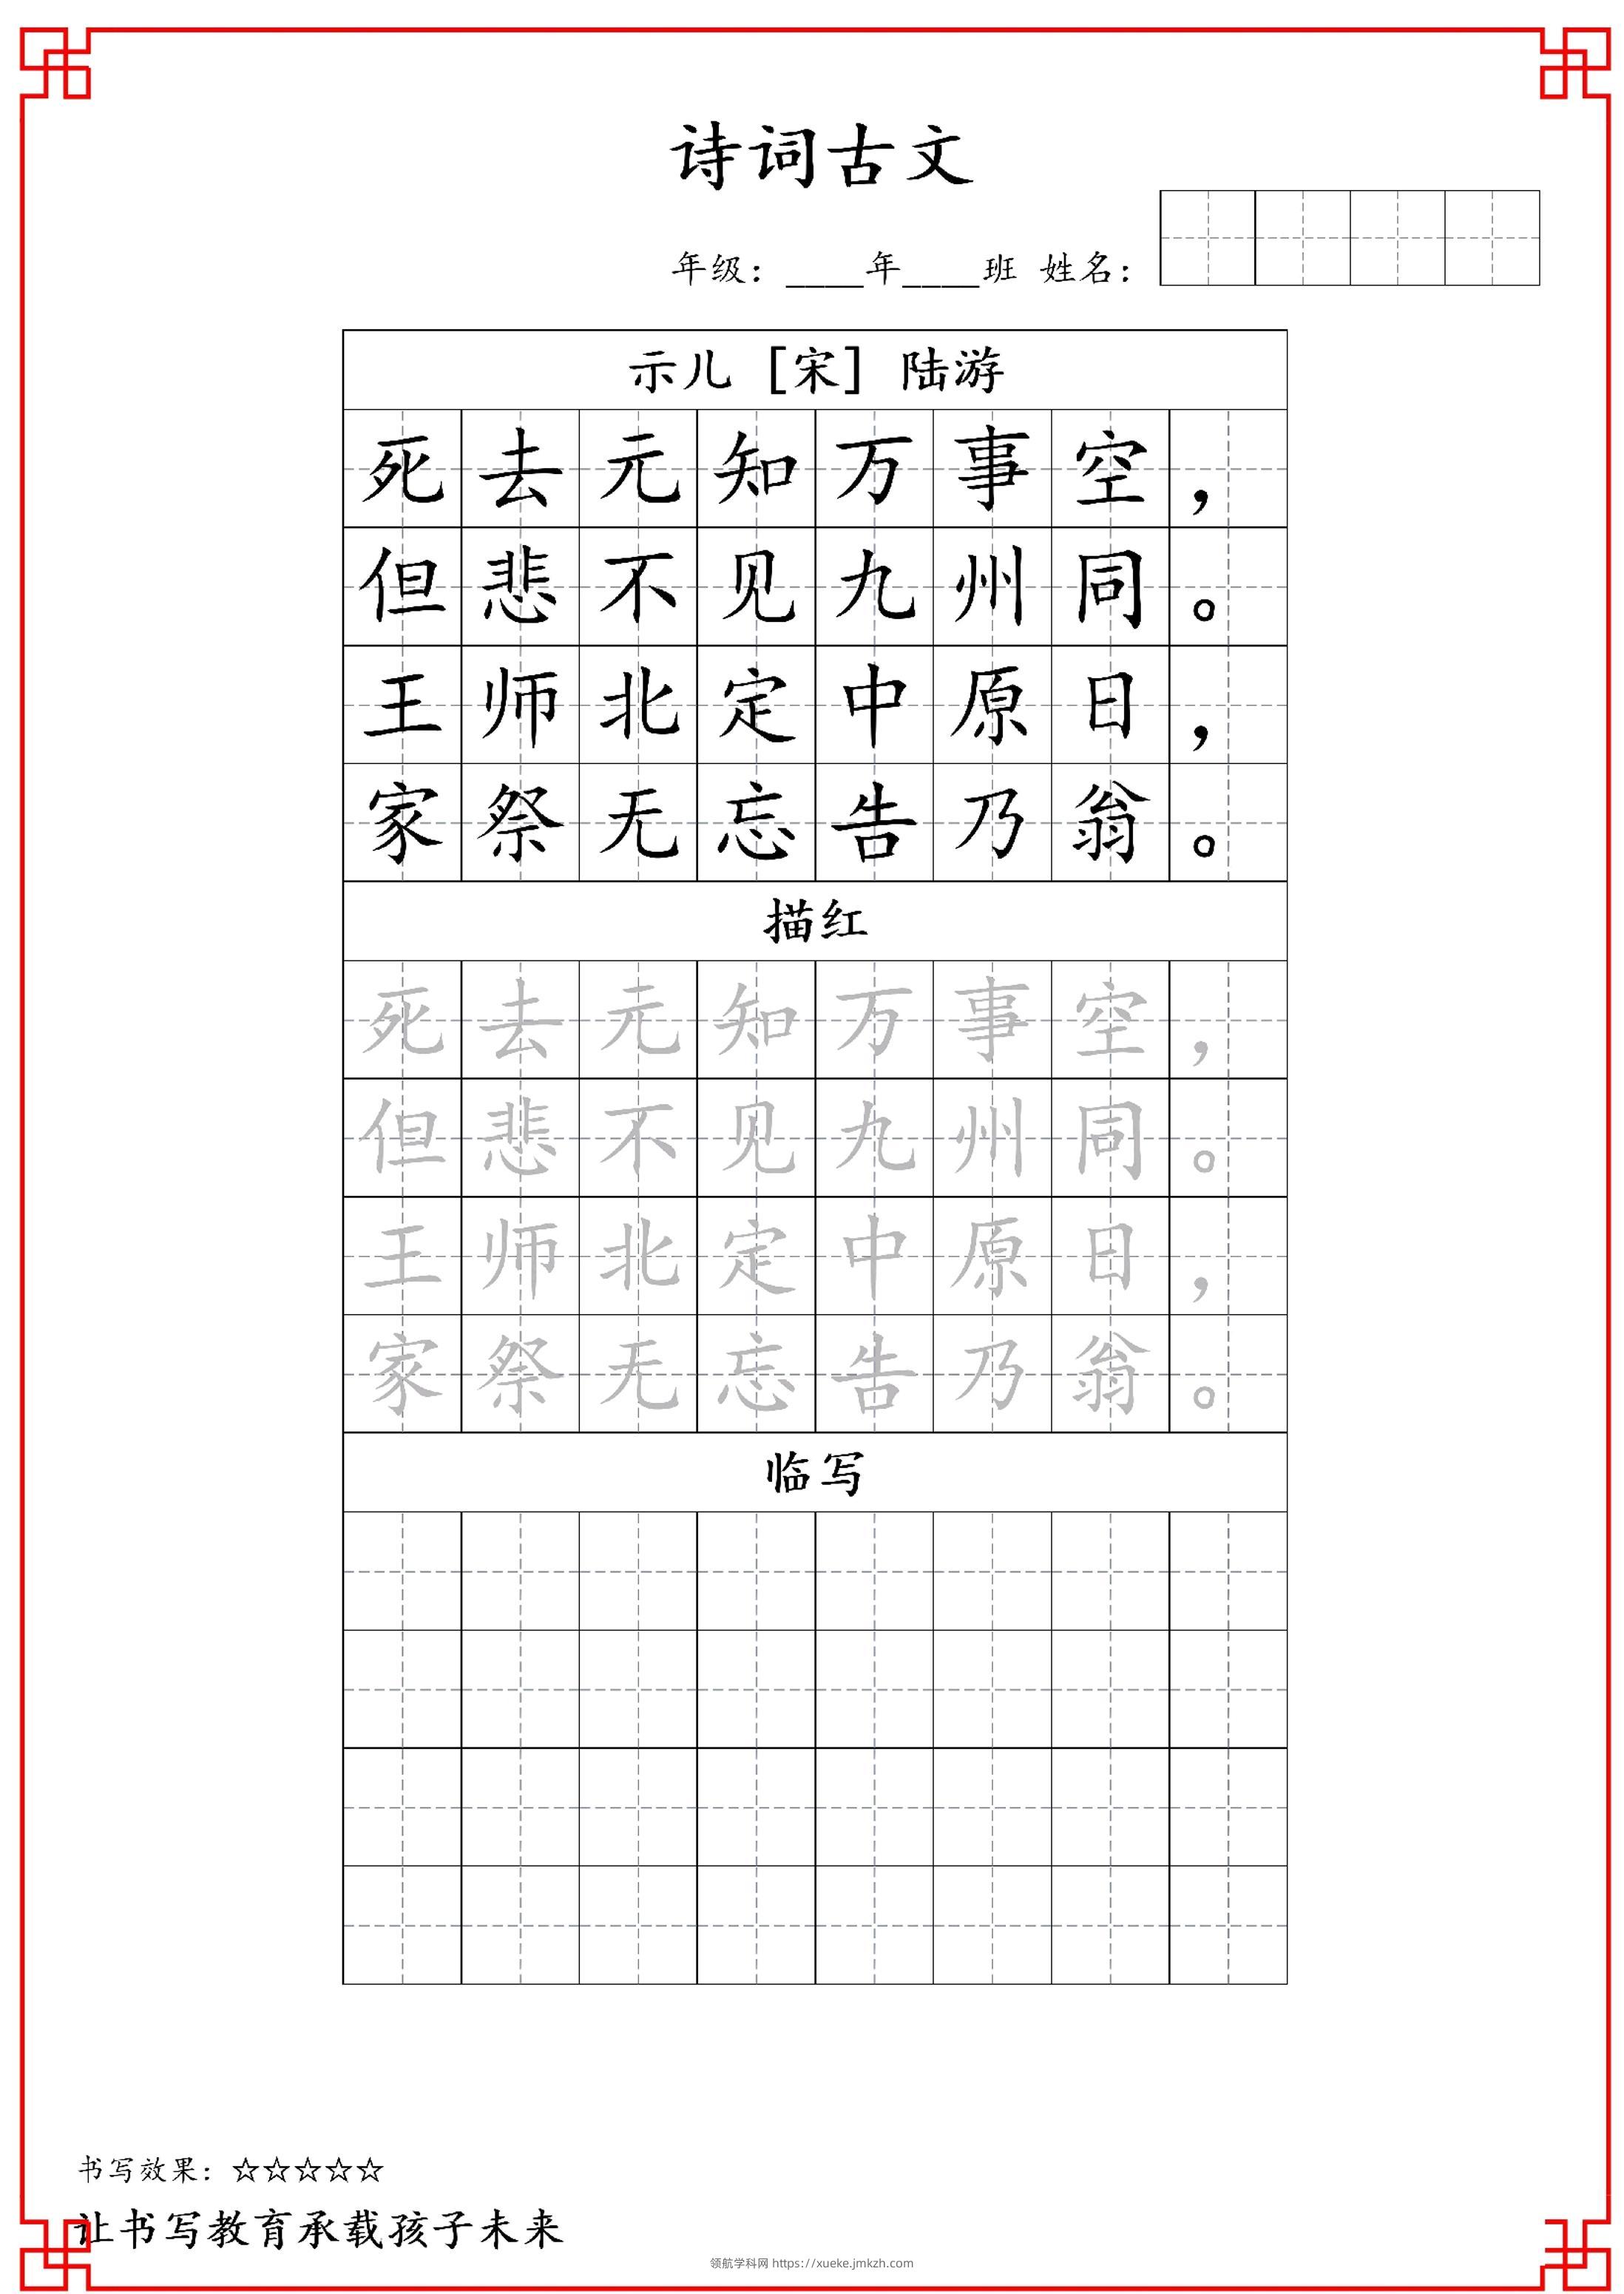 诗词古文
年级：____年____班 姓名：
示儿［宋］陆游
死去元知万事空，
但悲不见九州同。
王师北定中原日，
家祭无忘告乃翁。
描红
死去元知万事空，
但悲不见九州同。
王师北定中原日，
家祭无忘告乃翁。
临写
书写效果：☆☆☆☆☆
让书写教育承载孩子未来
领航学科网 https://xueke.jmkzh.com